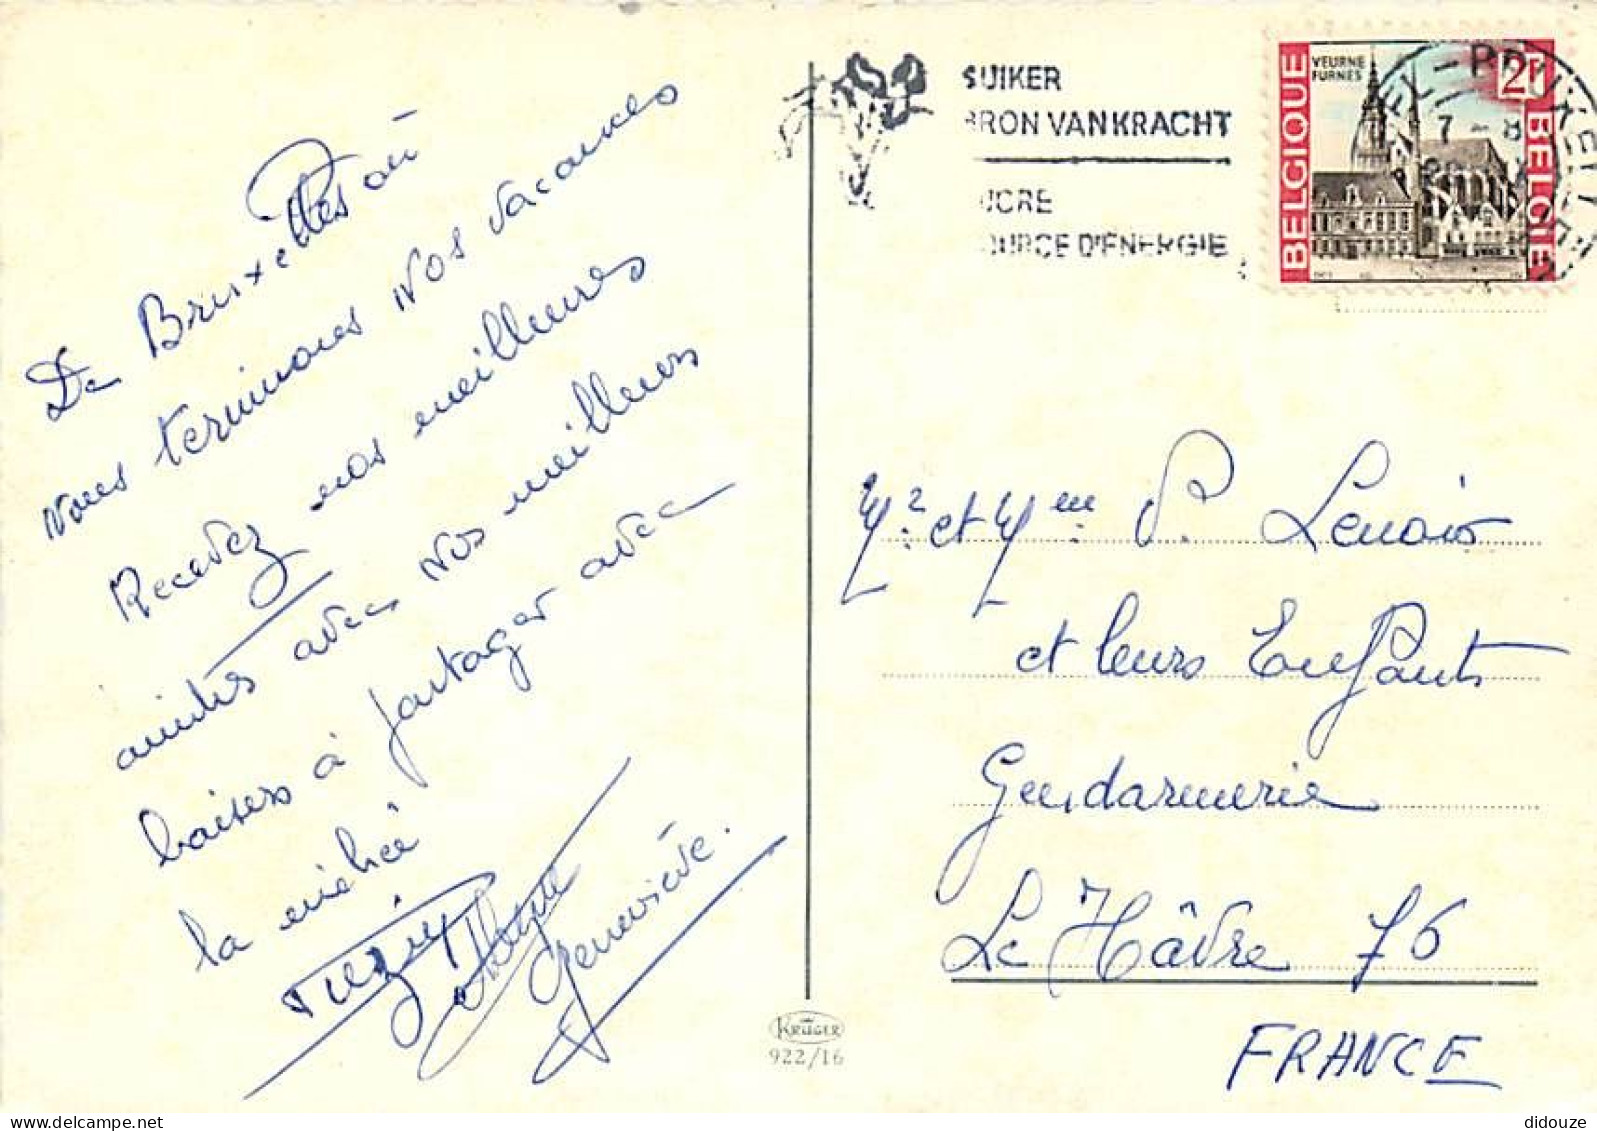 De Bruxelles où
nous terminons nos vacances
Recevez nos meilleures
amitiés avec nos meilleurs
baisers à partager avec
la
Geneviève.
SUIKER
BRON VAN KRACHT
SUCRE
SOURCE D'ENERGIE
VEURNE
FURNES
2F
BELGIQUE
BELGIE
7 - 8
Mr. et Mme P. Lenoir
et leurs Enfants
Gendarmerie
Le Hâvre 76
FRANCE
KRÜGER
922/16
didouze - delcampe.net